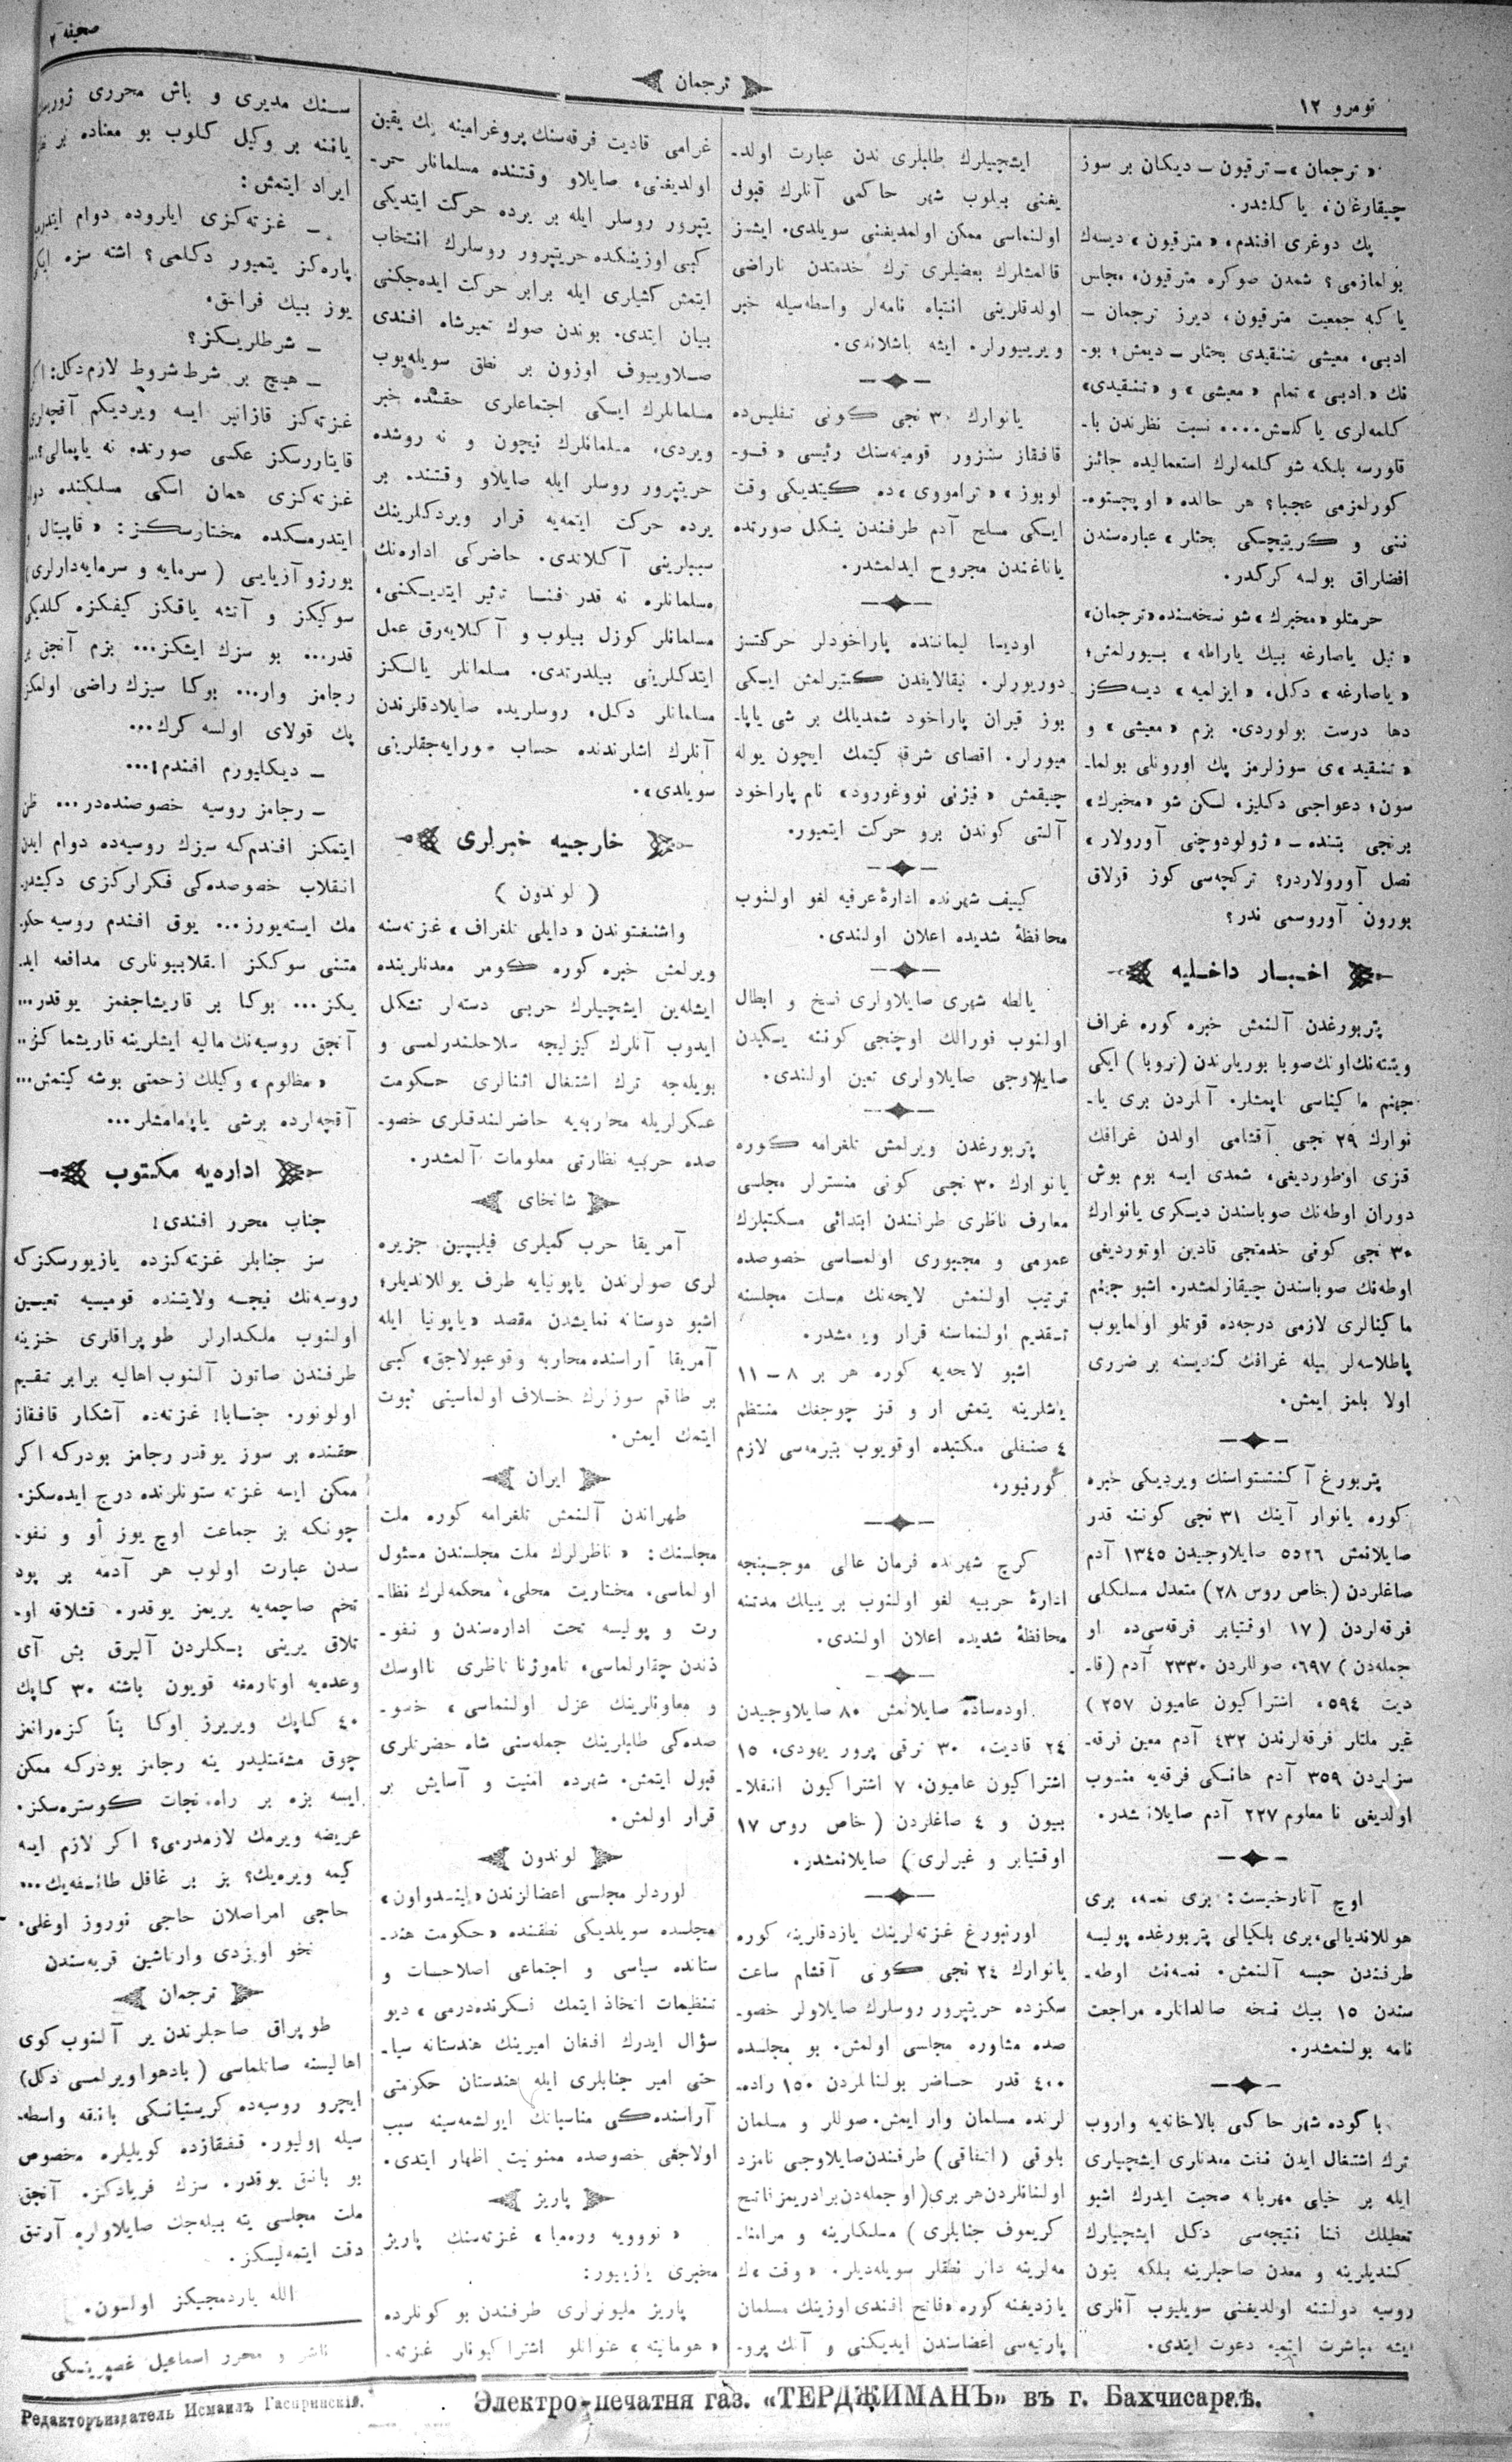 صحیفه ۲
ترجمان
نومرو ۱۲
«ترجمان»ـ ترقیون ـ دیکان بر سوز
چیقارغان، یا کلشدر.
پك دوغری افندم، «مترقیون» دیسەك
بولمازمی؟ شمدن صوكره مترقیون، مجلس
یا كه جمعیت مترقیون، دیرز ترجمان ـ
ادبی، معیشی تنقیدی بحثلر ـ دیمش؛ بو-
نك «ادبی» تمام «معیشی» و «تنقیدی»
كلمه‌لری یا كلش.... نسبت نظرندن با-
قلورسه بلكه شو كلمه‌لرك استعمالیده جائز
كورلمزمی عجبا؟ هر حالده «اوبچستوه-
ننی و كریتیچسكی بحثلر» عباره‌سندن
افضلراق بولسه كركدر.
حرمتلو «مخبرك» شو نسخه‌سنده «ترجمان»
«تیل یاصارغه بیك یاراطه» بیورلمش؛
«یاصارغه» دكل، «ایزلمیه» دیسه‌كز
دها درست بولوردی. بزم «معیشی» و
«تنقید»ی سوزلرمز پك اورونلی بولما-
سون؛ دعواجی دكلیز. لسكن شو «مخبرك»
برنجی بتنده ـ «ژولودوچنی آورولار»
نصل آورولاردر؟ تركچه‌سی كوز قولاق
بورون آوروسمی ندر؟
اخبار داخلیه
پتربورغدن آلنمش خبره كوره غراف
ویتته‌نك اونك صوبا بوریلرندن (تروبا) ایكی
جهنم ماكیناسی تاپمشلر. آنلردن بری یا-
نوارك ۲۹ نجی آقشامی اولدن غرافك
قزی اوطوردیغی، شمدی ایسه بوم بوش
دوران اوطه‌نك صوباسندن دیسكری یانوارك
۳۰ نجی كونی خدمتجی قادین اوتوردیغی
اوطه‌نك صوباسندن چیقارلمشدر. اشبو جهنم
ماكینالری لازمی درجه‌ده قوتلو اولمایوب
پاطلاسه‌لر بیله غرافك كندیسنه بر ضرری
اولا بلمز ایمش.
پتربورغ آكنتستواسنك ویردیكی خبره
كوره یانوار آینك ۳۱ نجی كوننه قدر
صایلانمش ۵۵۲۶ صایلاوجیدن ۱۳٤۵ آدم
صاغلردن (خاص روس ۲۸) متعدل مسلكلی
فرقه‌لردن (۱۷ اوقتیابر فرقه‌سی‌ده او
جمله‌دن) ٦۹۷، صوللردن ۲۳۳۰ آدم (قا-
دیت ۵۹٤، اشتراكیون عامیون ۲۵۷)
غیر ملتلر فرقه‌لرندن ٤۳۲ آدم معین فرقه-
سزلردن ۳۵۹ آدم هانسكی فرقه‌یه منسوب
اولدیغی نامعلوم ۲۲۷ آدم صایلانمشدر.
اوچ آنارخیست: بری نمسه، بری
هوللاندیالی، بری بلكیالی پتربورغده پولیسه
طرفندن حبسه آلنمش. نمسه‌نك اوطه-
سندن ۱۵ بیك نسخه صالداتلره مراجعت
نامه بولنمشدر.
باكوده شهر حاكمی بالاخانه‌یه واروب
ترك اشتغال ایدن نفت معدنلری ایشچیلری
ایله بر خیلی مهربانه صحبت ایدرك اشبو
تعطیلك فنا نتیجه‌سی دكل ایشچیلرك
كندیلرینه و معدن صاحبلرینه بلكه بتون
روسیه دولتنه اولدیغنی سویلیوب آنلری
ایشه مباشرت ایتمیه دعوت ایتدی.
ایشچیلرك طلبلری ندن عبارت اولد-
یغنی بیلوب شهر حاكمی آنلرك قبولی
اولنماسی ممكن اولمدیغنی سویلدی. ایشسز
قالمشلرك بعضیلری ترك خدمتدن ناراضی
اولدقلرینی انتباه نامه‌لر واسطه‌سیله خبر
ویرییورلر. ایشه باشلاندی.
یانوارك ۳۰ نجی كونی تفلیس‌ده
قافقاز سنزور قومیته‌سنك رئیسی «قسو-
لوبوز» «ترامووی»ده كیتدیكی وقت
ایسكی مسلح آدم طرفندن یتكل صورتده
یاناغندن مجروح ایدلمشدر.
اودیسا لیماننده پاراخودلر حركتسز
دوریورلر. نیقالایفدن كتیرلمش ایسكی
بوز قیران پاراخود شمدیلك بر شی یاپا-
میورلر. اقصای شرقه كیتمك ایچون یوله
چیقمش «نیژنی نووغورود» نام پاراخود
آلتی كوندن برو حركت ایتمیور.
كییف شهرنده ادارۀ عرفیه لغو اولنوب
محافظۀ شدیده اعلان اولندی.
یالطه شهری صایلاولری نسخ و ابطال
اولنوب فورالك اوچنجی كوننه یسكیدن
صایلاوجی صایلاولری تعین اولندی.
پتربورغدن ویرلمش تلغرامه كوره
یانوارك ۳۰ نجی كونی منسترلر مجلسی
معارف ناظری طرفندن ابتدائی مسكتبلرك
عمومی و مجبوری اولماسی خصوصده
ترتیب اولنمش لایحه‌نك ملت مجلسنه
تقدیم اولنماسنه قرار ویرمشدر.
اشبو لایحه‌یه كوره هر بر ۸ ـ ۱۱
یاشلرینه یتمش ار و قز چوجغك منتظم
٤ صنفلی مكتبده اوقویوب بتیرمه‌سی لازم
كورنیور.
كرچ شهرنده فرمان عالی موجبنجه
ادارۀ حربیه لغو اولنوب بر ییلك مدتنه
محافظۀ شدیده اعلان اولندی.
اوده‌ساده صایلانمش ۸۰ صایلاوجیدن
۲٤ قادیت، ۳۰ ترقی پرور یهودی، ۱۵
اشتراكیون عامیون، ۷ اشتراكیون انقلا-
بیون و ٤ صاغلردن (خاص روس ۱۷
اوقتیابر و غیرلری) صایلانمشدر.
اورنبورغ غزته‌لرینك یازدقلرینه كوره
یانوارك ۲٤ نجی كونی آقشام ساعت
سكزده حریتپرور روسلرك صایلاولر خصو-
صده مشاوره مجلسی اولمش. بو مجلسده
٤۰۰ قدر حاضر بولنانلردن ۱۵۰ راده-
لرنده مسلمان وار ایمش. صوللر و مسلمان
بلوقی (اتفاقی) طرفندن صایلاوجی نامزد
اولنانلردن هر بری (او جمله‌دن برادریمز فاتح
كریموف جنابلری) مسلكلرینه و مرامنا-
مه‌لرینه دائر نطقلر سویله‌دیلر. «وقت»ك
یازدیغنه كوره «فاتح افندی اوزینك مسلمان
پارتیه‌سی اعضاسندن ایدیكنی و آنك پرو-
غرامی قادیت فرقه‌سنك پروغرامینه پك یقین
اولدیغنی، صایلاو وقتنده مسلمانلر حر-
یتپرور روسلر ایله بر یرده حركت ایتدیكی
كبی اوزینكده حریتپرور روسلرك انتخاب
ایتمش كشیلری ایله برابر حركت ایده‌جكنی
بیان ایتدی. بوندن صوك تمیرشاه افندی
صلاوییوف اوزون بر نطق سویله‌یوب
مسلمانلرك ایسكی اجتماعلری حقنده خبر
ویردی، مسلمانلرك نیچون و نه روشده
حریتپرور روسلر ایله صایلاو وقتنده بر
یرده حركت ایتمه‌یه قرار ویردكلرینك
سببلرینی آكلاندی. حاضركی اداره‌نك
مسلمانلره نه قدر فنا تاثیر ایتدیسكنی،
مسلمانلر كوزل بیلوب و آكلایه‌رق عمل
ایتدكلرینی بیلدرتدی. مسلمانلر یالسكز
مسلمانلر دكل، روسلریده صایلادقلرندن
آنلرك اشلرندنده حساب صورایه‌جقلرینی
سویلدی».
خارجیه خبرلری
(لوندون)
واشنغتوندن «دایلی تلغراف» غزته‌سنه
ویرلمش خبره كوره كومر معدنلرینده
ایشله‌ین ایشچیلرك حربی دسته‌لر تشكل
ایدوب آنلرك كیزلیجه سلاحلندرلمسی و
بویله‌جه ترك اشتغال اثنالری حسكومت
عسكرلریله محاربه‌یه حاضرلندقلری خصو-
صده حربیه نظارتی معلومات آلمشدر.
شانخای
آمریقا حرب كمیلری فیلیپین جزیره
لری صولرندن یاپونیایه طرف یوللاندیلر؛
اشبو دوستانه نمایشدن مقصد «یاپونیا ایله
آمریقا آراسنده محاربه وقوعبولاجق» كبی
بر طاقم سوزلرك خلاف اولماسینی ثبوت
ایتمك ایمش.
ایران
طهراندن آلنمش تلغرامه كوره ملت
مجلسنك: «ناظرلرك ملت مجلسندن مسئول
اولماسی، مختاریت محلی، محكمه‌لرك نظا-
رت و پولیسه تحت اداره‌سندن و نفو-
ذندن چقارلماسی، تاموژنا ناظری نااوسك
و معاونلرینك عزل اولنماسی» خصو-
صده‌كی طلبلرینك جمله‌سنی شاه حضرتلری
قبول ایتمش. شهرده امنیت و آسایش بر
قرار اولمش.
لوندون
لوردلر مجلسی اعضالرندن
مجلسده سویلدیكی نطقنده «حكومت هند-
ستانده سیاسی و اجتماعی اصلاحات و
تنظیمات اتخاذ ایتمك فسكرنده‌درمی» دیو
سؤال ایدرك افغان امیرینك هندستانه سیا-
حتی امیر جنابلری ایله هندستان حكومتی
آراسنده‌كی مناسباتك ایولشمه‌سینه سبب
اولاجغی خصوصده ممنونیت اظهار ایتدی.
پاریز
«نووویه وره‌میا» غزته‌سنك پاریز
مخبری یازییور:
پاریز ملیونرلری طرفندن بو كونلرده
«هومانیته» عنوانلو اشتراكیونلر غزته-
سنك مدیری و باش محرری ژوره‌س
یاننه بر وكیل كلوب بو معناده بر
ایراد ایتمش:
ـ غزته‌كزی ایلروده دوام ایتدرمك
پاره‌كز یتمیور دكلمی؟ اشته سزه ایكی
یوز بیك فرانق.
ـ شرطلریسكز؟
ـ هیچ بر شرط شروط لازم دكل: اكر
غزته‌كز قازانیر ایسه ویردیكم آقچه‌لری
قایتاررسكز عكسی صورتده نه یاپمالی؟...
غزته‌كزی همان اسكی مسلكنده دوام
ایتدرمسكده مختارسكز: «قاپیتال و
بورژوآزیایی (سرمایه و سرمایه‌دارلری)
سوكیكز و آتشه یاقكز كیفكزه كلدیكی
قدر... بو سزك ایشكز... بزم آنجق بر
رجامز وار... بوكا سیزك راضی اولمكز
پك قولای اولسه كرك...
ـ دیكلیورم افندم!...
ـ رجامز روسیه خصوصنده‌در... ظن
ایتمكز افندم كه سیزك روسیه‌ده دوام ایدن
انقلاب خصوصده‌كی فكرلركزی دكیشدر-
مك ایسته‌یورز... یوق افندم روسیه حكو-
متنی سوككز انقلابیونلری مدافعه ایدـ
یكز... بوكا بر قاریشاجغمز یوقدر...
آنجق روسیه‌نك مالیه ایشلرینه قاریشماكز...
«مظلوم» وكیلك زحمتی بوشه كیتمش...
آقچه‌لرده برشی یاپامامشلر...
اداره‌یه مكتوب
جناب محرر افندی!
سز جنابلر غزته‌كزده یازیورسكزكه
روسیه‌نك نیچه ولایتنده قومیسیه تعیین
اولنوب ملكدارلر طوپراقلری خزینه
طرفندن صاتون آلنوب اهالیه برابر تقسیم
اولونور. جنابا! غزته‌ده آشكار قافقاز
حقنده بر سوز یوقدر رجامز بودركه اكر
ممكن ایسه غزته ستونلرنده درج ایده‌سكز.
چونكه بز جماعت اوچ یوز أو و نفو-
سدن عبارت اولوب هر آدمه بر پود
تخم صاچمه‌یه یریمز یوقدر. قشلاقه او-
تلاق یرینی بسكلردن آلیرق بش آی
وعده‌یه اوتارمغه قویون باشنه ۳۰ كاپك
٤۰ كاپك ویریرز اوكا بناً كزه‌رانمز
چوق مشقتلیدر ینه رجامز بودركه ممكن
ایسه بزه بر راه نجات كوستره‌سكز.
عریضه ویرمك لازمدرمی؟ اكر لازم ایسه
كیمه ویره‌یك؟ بز بر غافل طائفه‌یك...
حاجی امراصلان حاجی نوروز اوغلی.
نخو اویزدی وارتاشین قریه‌سندن
ترجمان
طوپراق صاحبلرندن یر آلنوب كوی
اهالیسنه صاتلماسی (بادهوا ویرلمسی دكل)
ایچرو روسیه‌ده كریستیانسكی بانقه واسطه-
سیله اولیور. قفقازده كویلیلره مخصوص
بو بانق یوقدر. سزك فریادكز. آنجق
ملت مجلسی یته بیله‌جك صایلاولره آرتق
دقت ایتمه‌لیسكز.
الله یاردمجیكز اولسون.
ناشر و محرر اسماعیل غصپرینسكی
Редакторъиздатель Исмаилъ Гаспринскій.
Электро-печатня газ. «ТЕРДЖИМАНЪ» въ г. Бахчисараѣ.